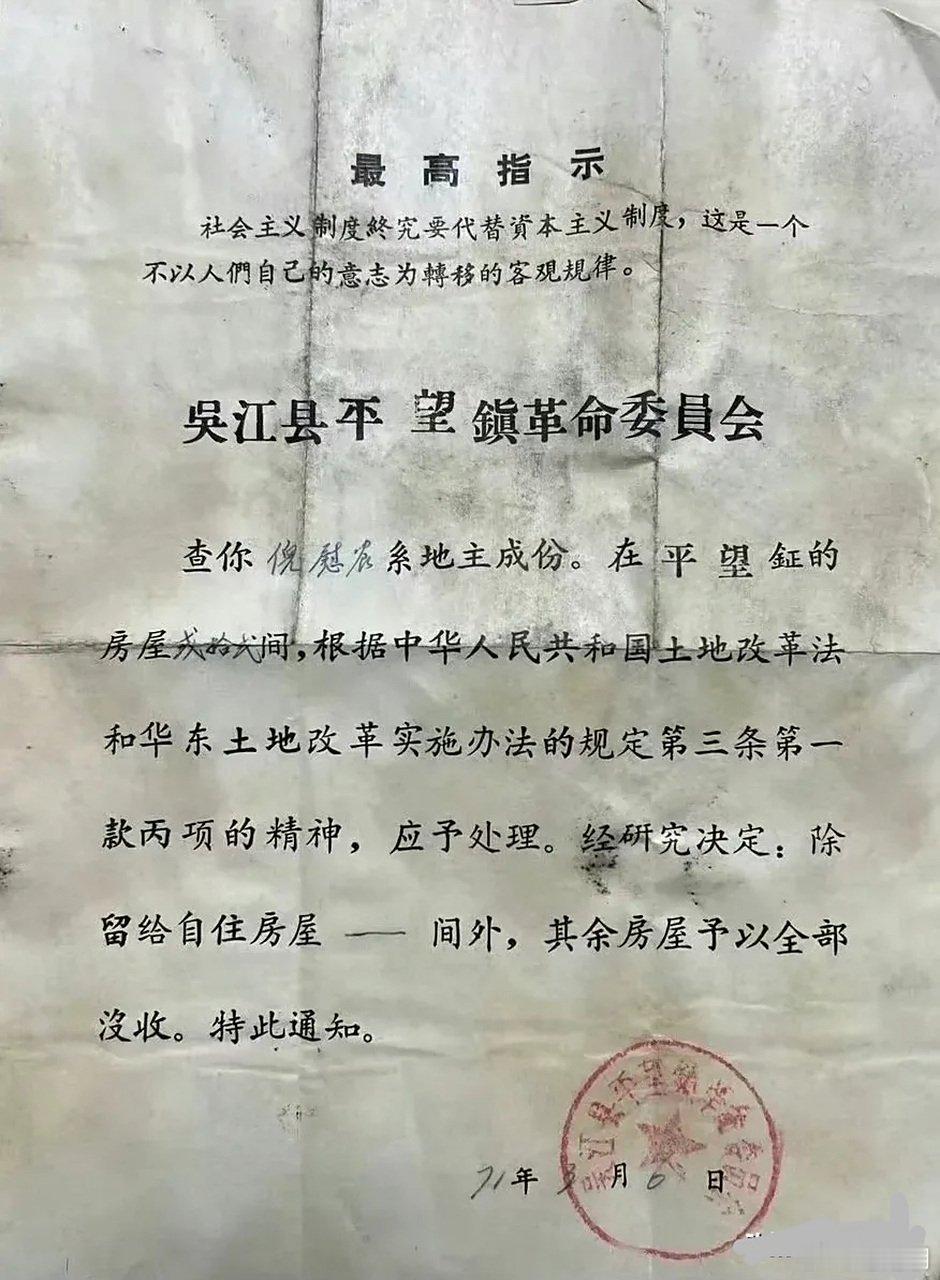 最高指示
社会主义制度終究要代替資本主义制度，这是一个
不以人們自己的意志为轉移的客观規律。
吳江县平望鎭革命委員会
查你倪慰农系地主成份。在平望鉦的
房屋弍拾弍间，根据中华人民共和国土地改革法
和华东土地改革实施办法的规定第三条第一
款丙项的精神，应予处理。经研究决定：除
留给自住房屋 —— 间外，其余房屋予以全部
沒收。特此通知。
71年3月6日